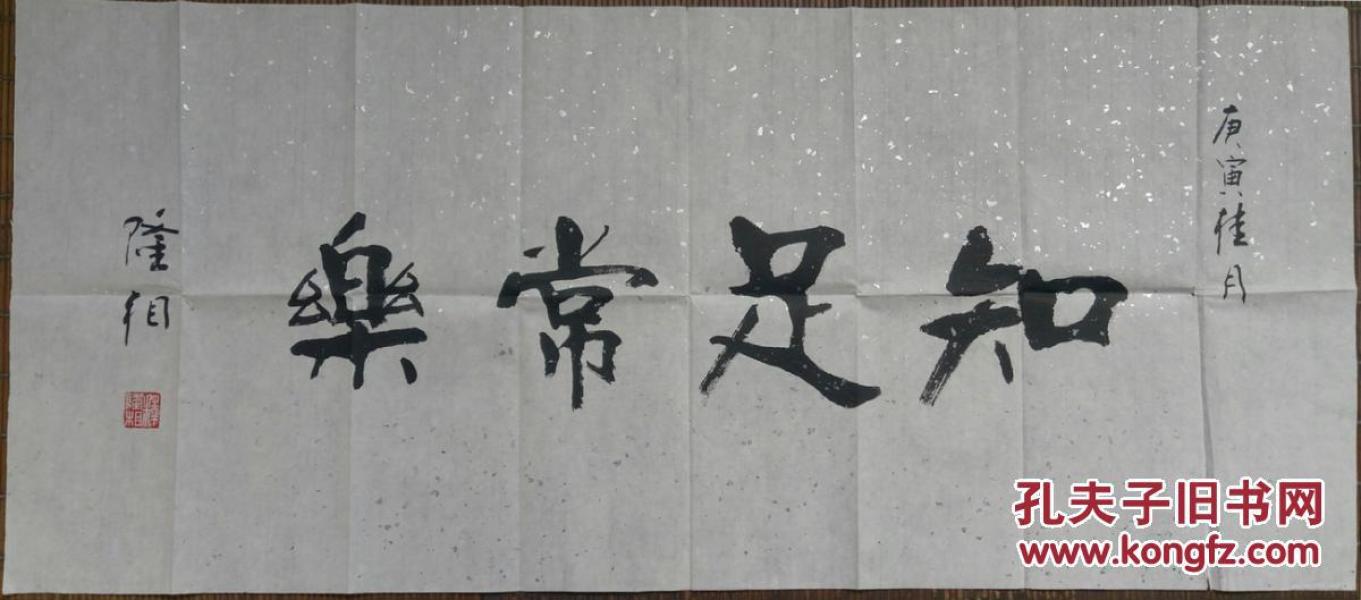 庚寅桂月
知足常樂
隆相
釋隆相
孔夫子旧书网
www.kongfz.com